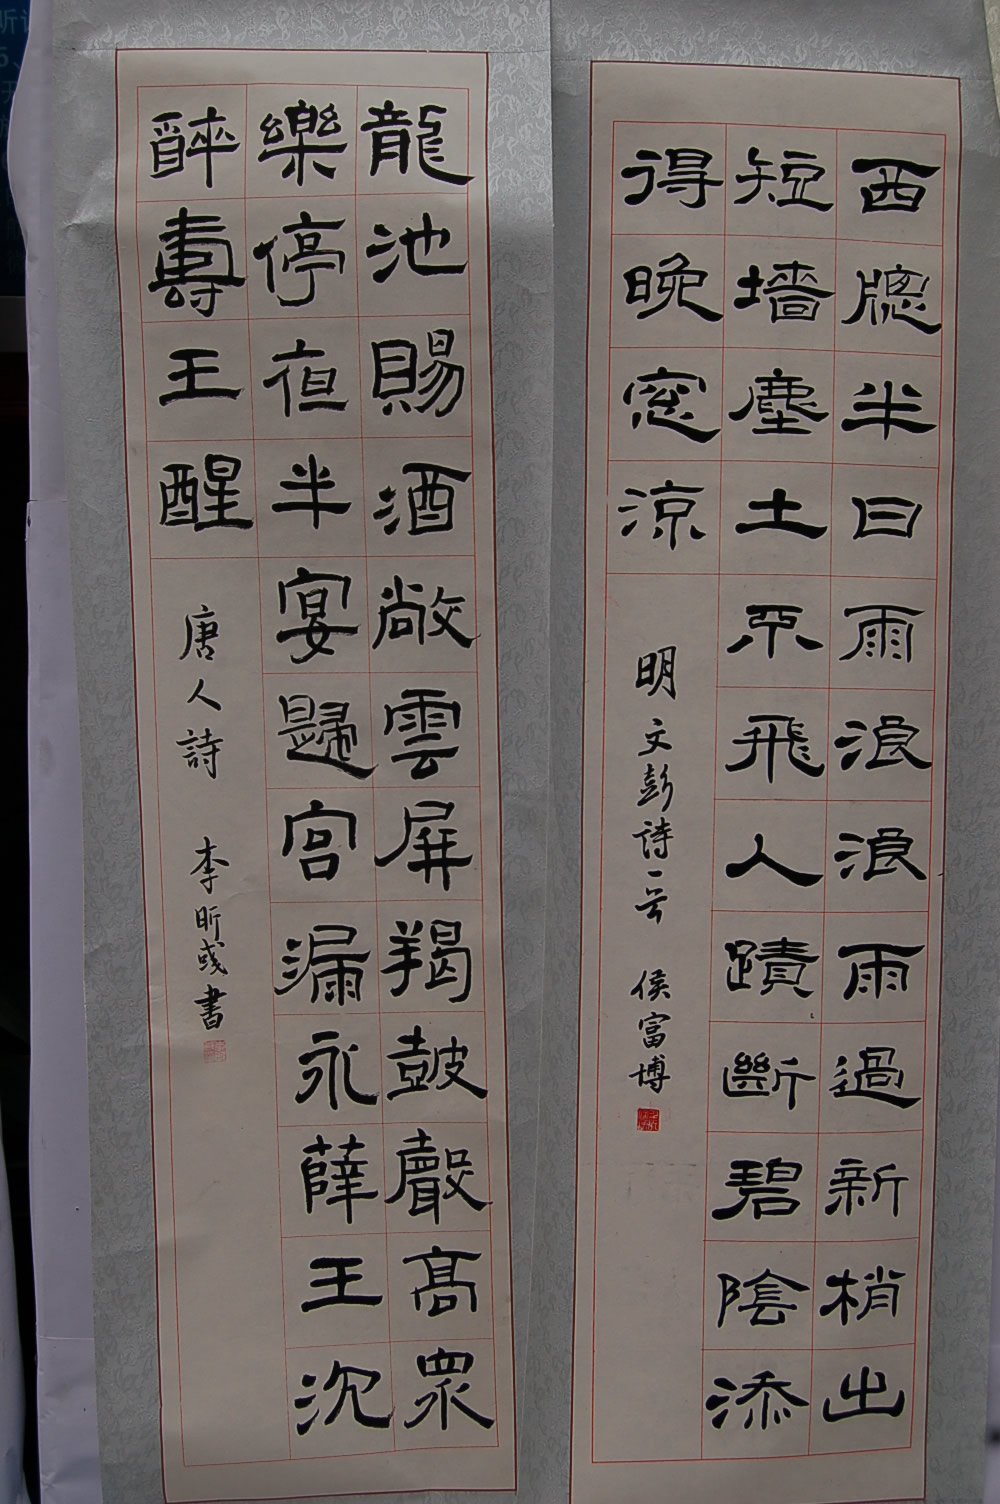 西牕半日雨浪浪雨過新梢出
短墙塵土不飛人蹟斷碧陰添
得晚窓涼
明文彭诗一首 侯富博
龍池賜酒敞雲屏羯鼓聲高衆
樂停夜半宴歸宮漏永薛王沉
醉壽王醒
唐人詩 李昕彧書